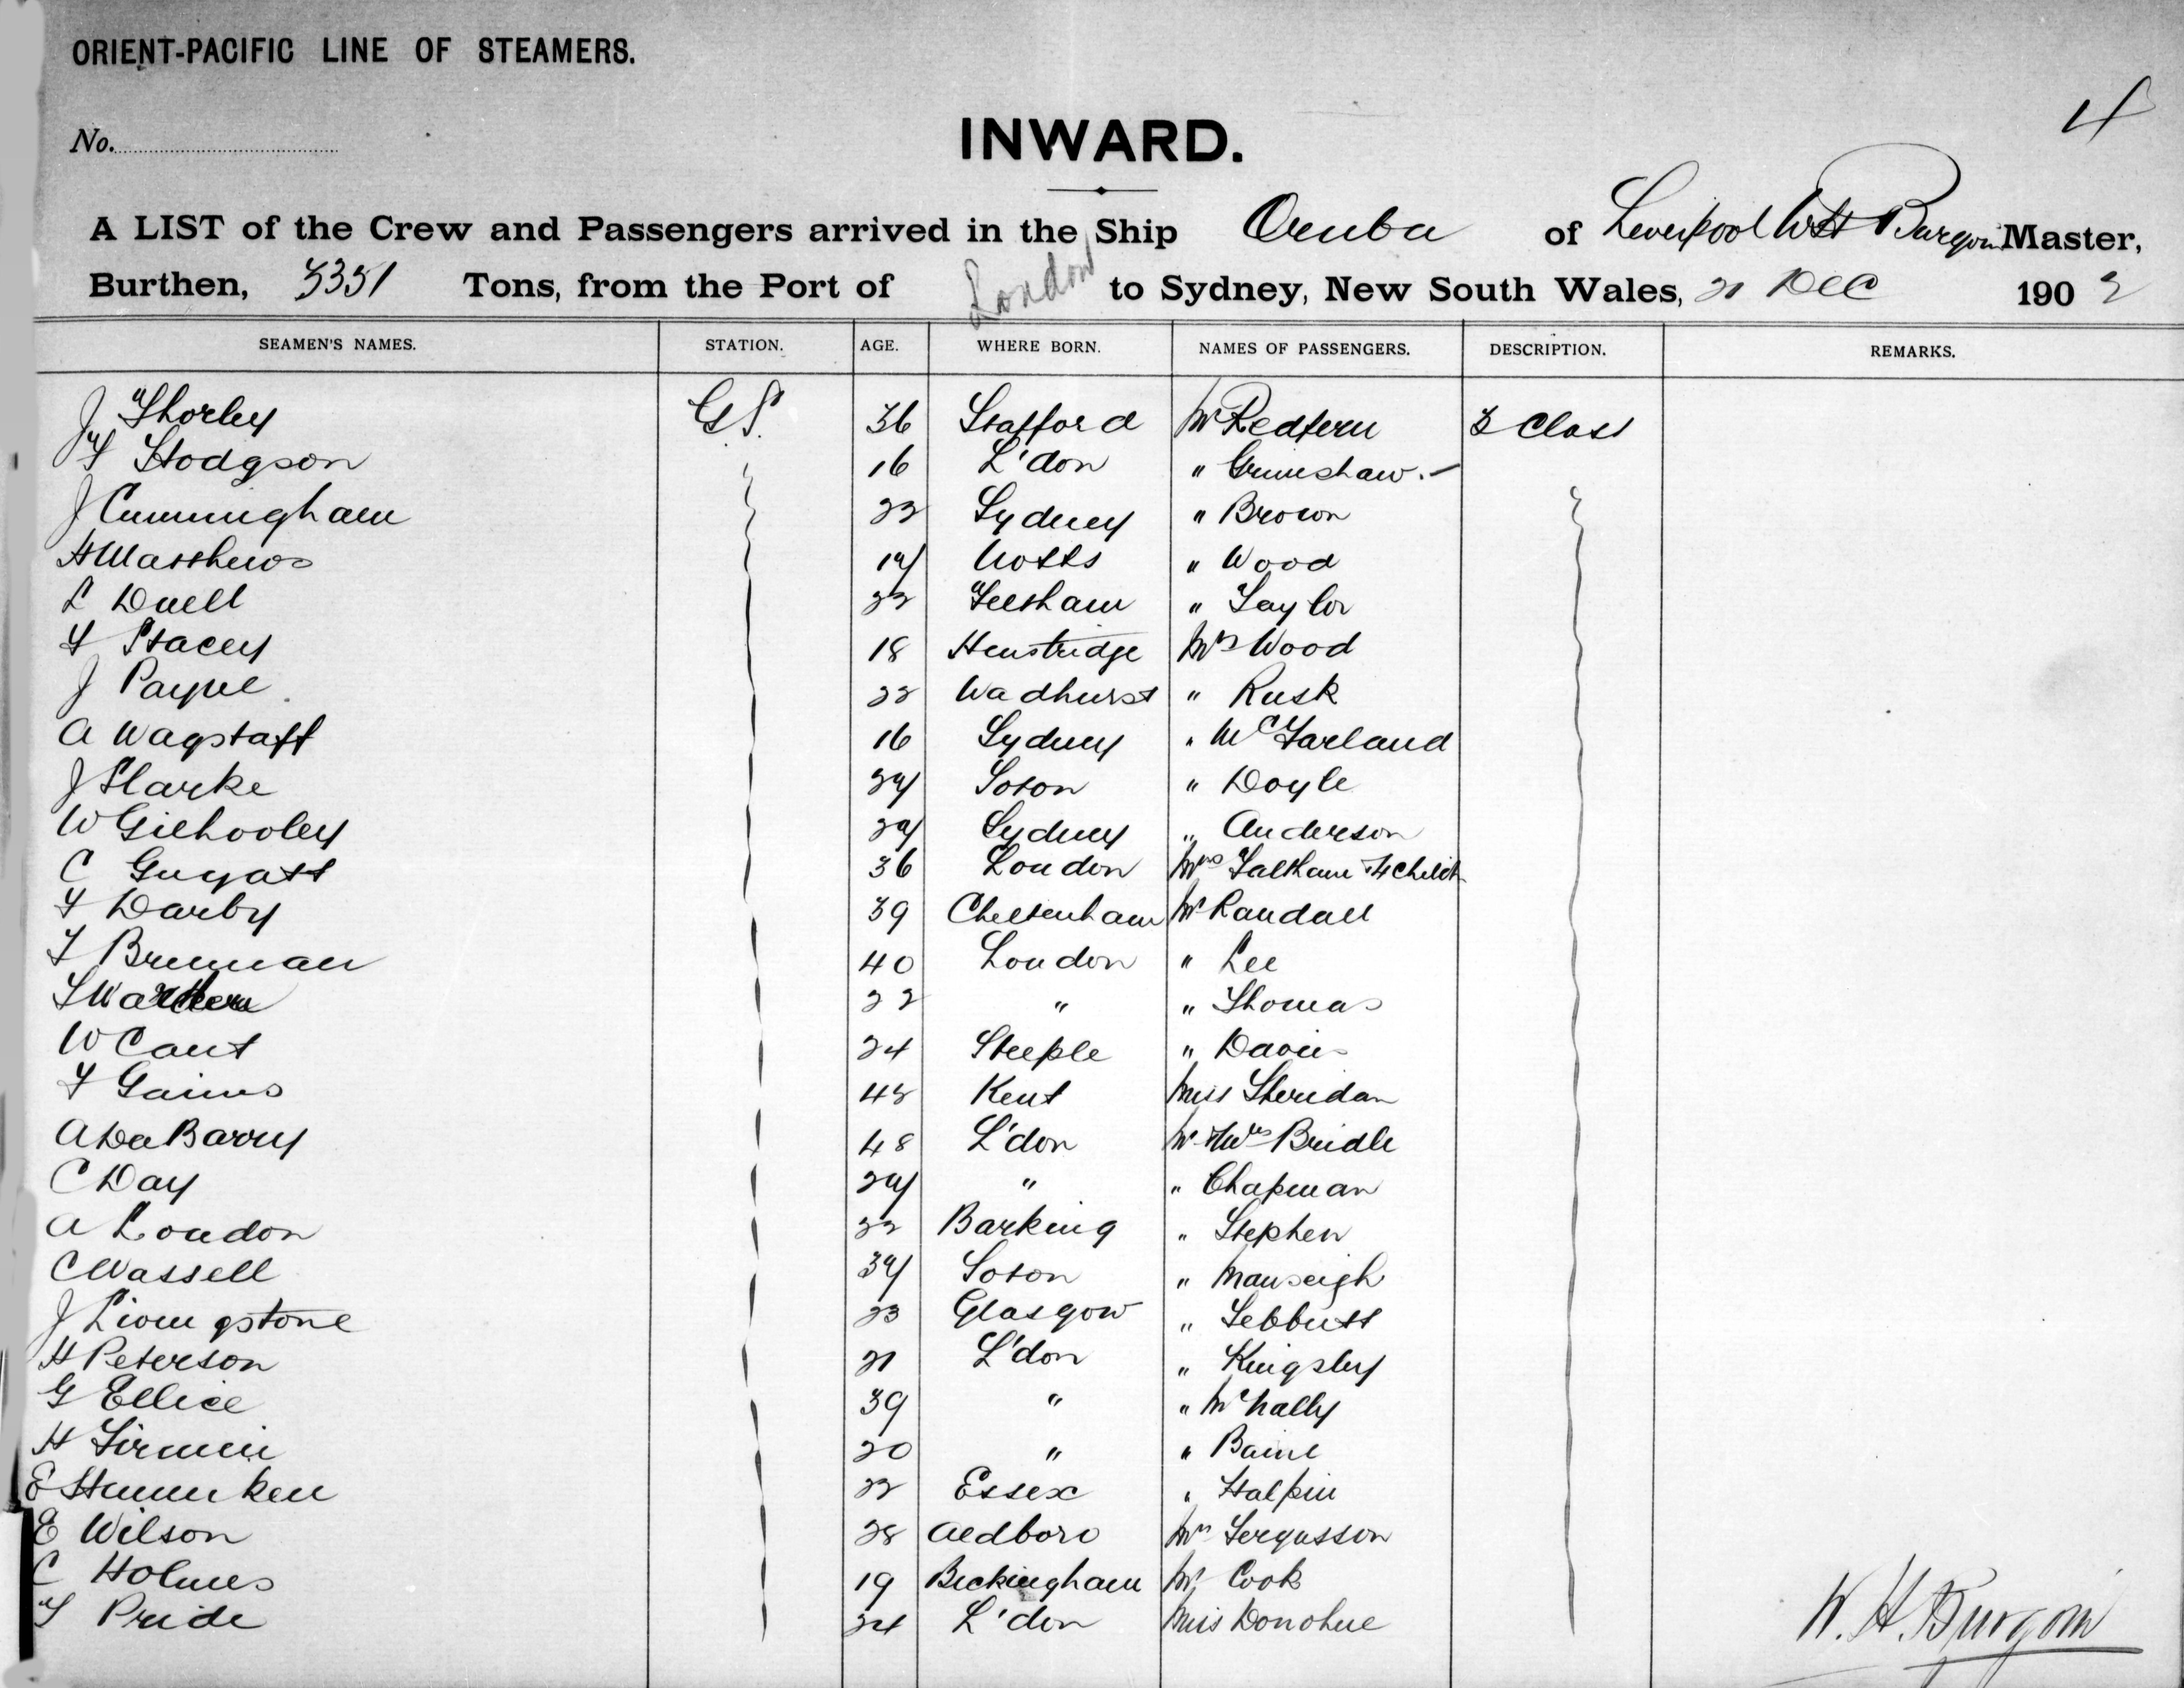 ORIENT-PACIFIC LINE OF STEAMERS.
4
No.
INWARD.
A LIST of the Crew and Passengers arrived in the Ship Oruba of Liverpool W H Burgoin Master,
Burthen, 3351 Tons, from the Port of London to Sydney, New South Wales, 21 Dec 1902
SEAMEN'S NAMES. STATION. AGE. WHERE BORN. NAMES OF PASSENGERS. DESCRIPTION. REMARKS.
J Thorley G.S. 36 Stafford Mr Redfern 3 Class
Hodgson 16 L'don " Grimshaw.-
J Cunningham 23 Sydney " Brown
H Matthews 19 Notts " Wood
L Duell 22 Feltham " Taylor
F Stacey 18 Henstridge Mrs Wood
J Payne 22 Wadhurst " Rusk
A Wagstaff 16 Sydney " McFarland
J Starke 29 Soton " Doyle
W Gilhooley 29 Sydney " Anderson
C Gugatt 36 London Mrs Falkam & 4 Child
F Darby 39 Cheltenham Mr Randall
T Brennan 40 London " Lee
S 22 " " Thomas
W Cant 24 Steeple " Davis
F Gaines 42 Kent Miss Sheridan
A DaBarry 48 L'don Mr & Mrs Bridle
C Day 29 " " Chapman
A London 22 Barking " Stephen
C Wassell 39 Soton " Manseigh
J Livingstone 23 Glasgow " Tebbutt
H Peterson 21 L'don " Kingsley
G Ellice 39 " " McNally
H Firmin 20 " " Baine
E 22 Essex " Halpin
E Wilson 28 Aldboro Mrs Fergusson
C Holmes 19 Beckingham Mr Cook
T Pride 24 L'don Miss Donohue
W. H. Burgoin